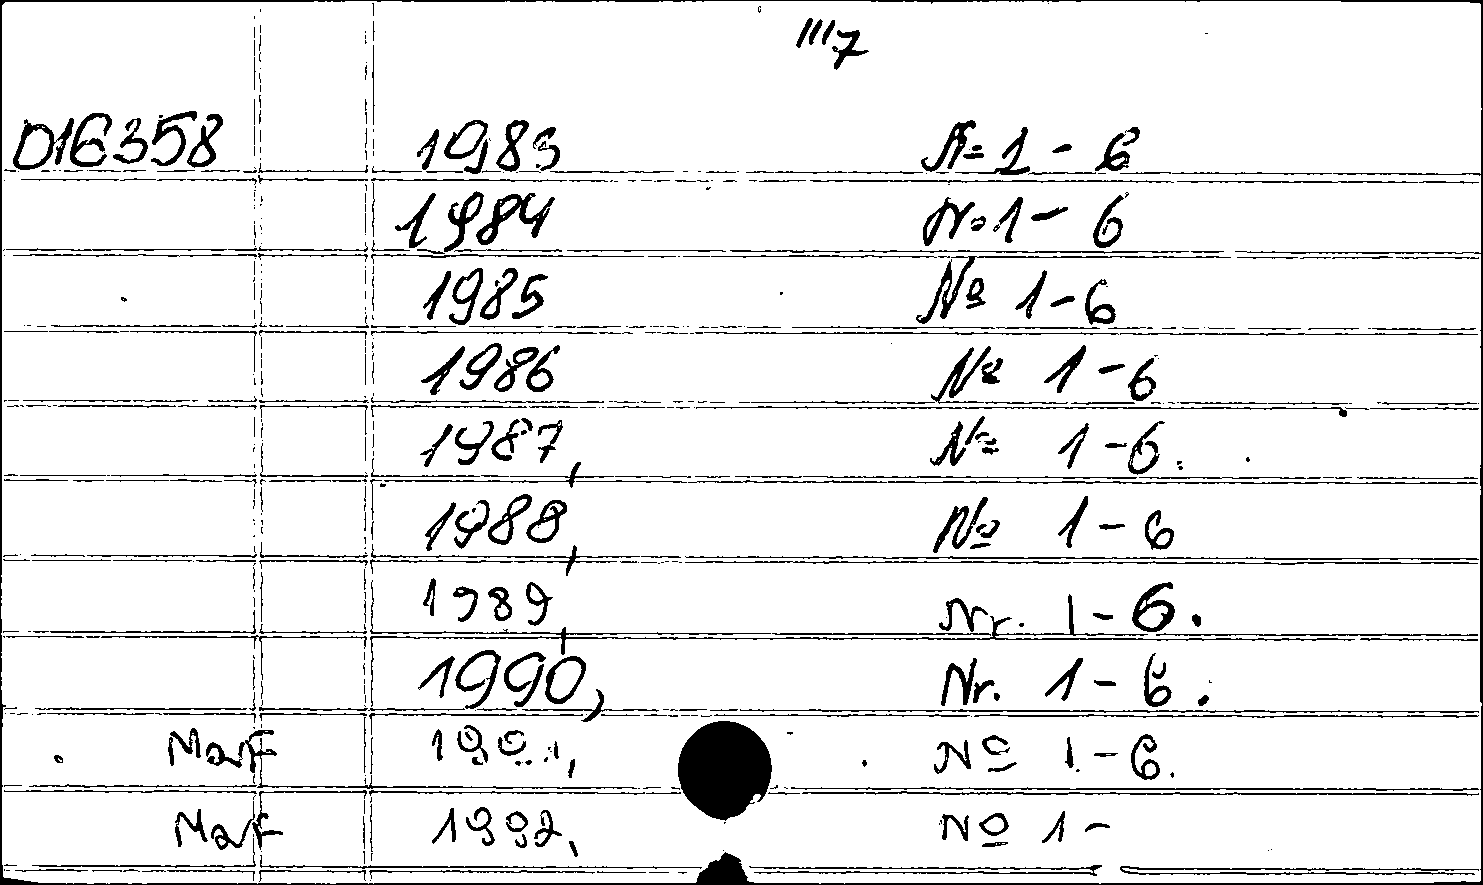 III7
D16358 1983 № 1 - 6
1984 № 1 - 6
1985 № 1 - 6
1986 № 1 - 6
1987, № 1 - 6.
1988, № 1 - 6
1989, Nr. 1 - 6.
1990, Nr. 1 - 6.
MaF 1991, № 1 - 6.
MaF 1992, № 1 -